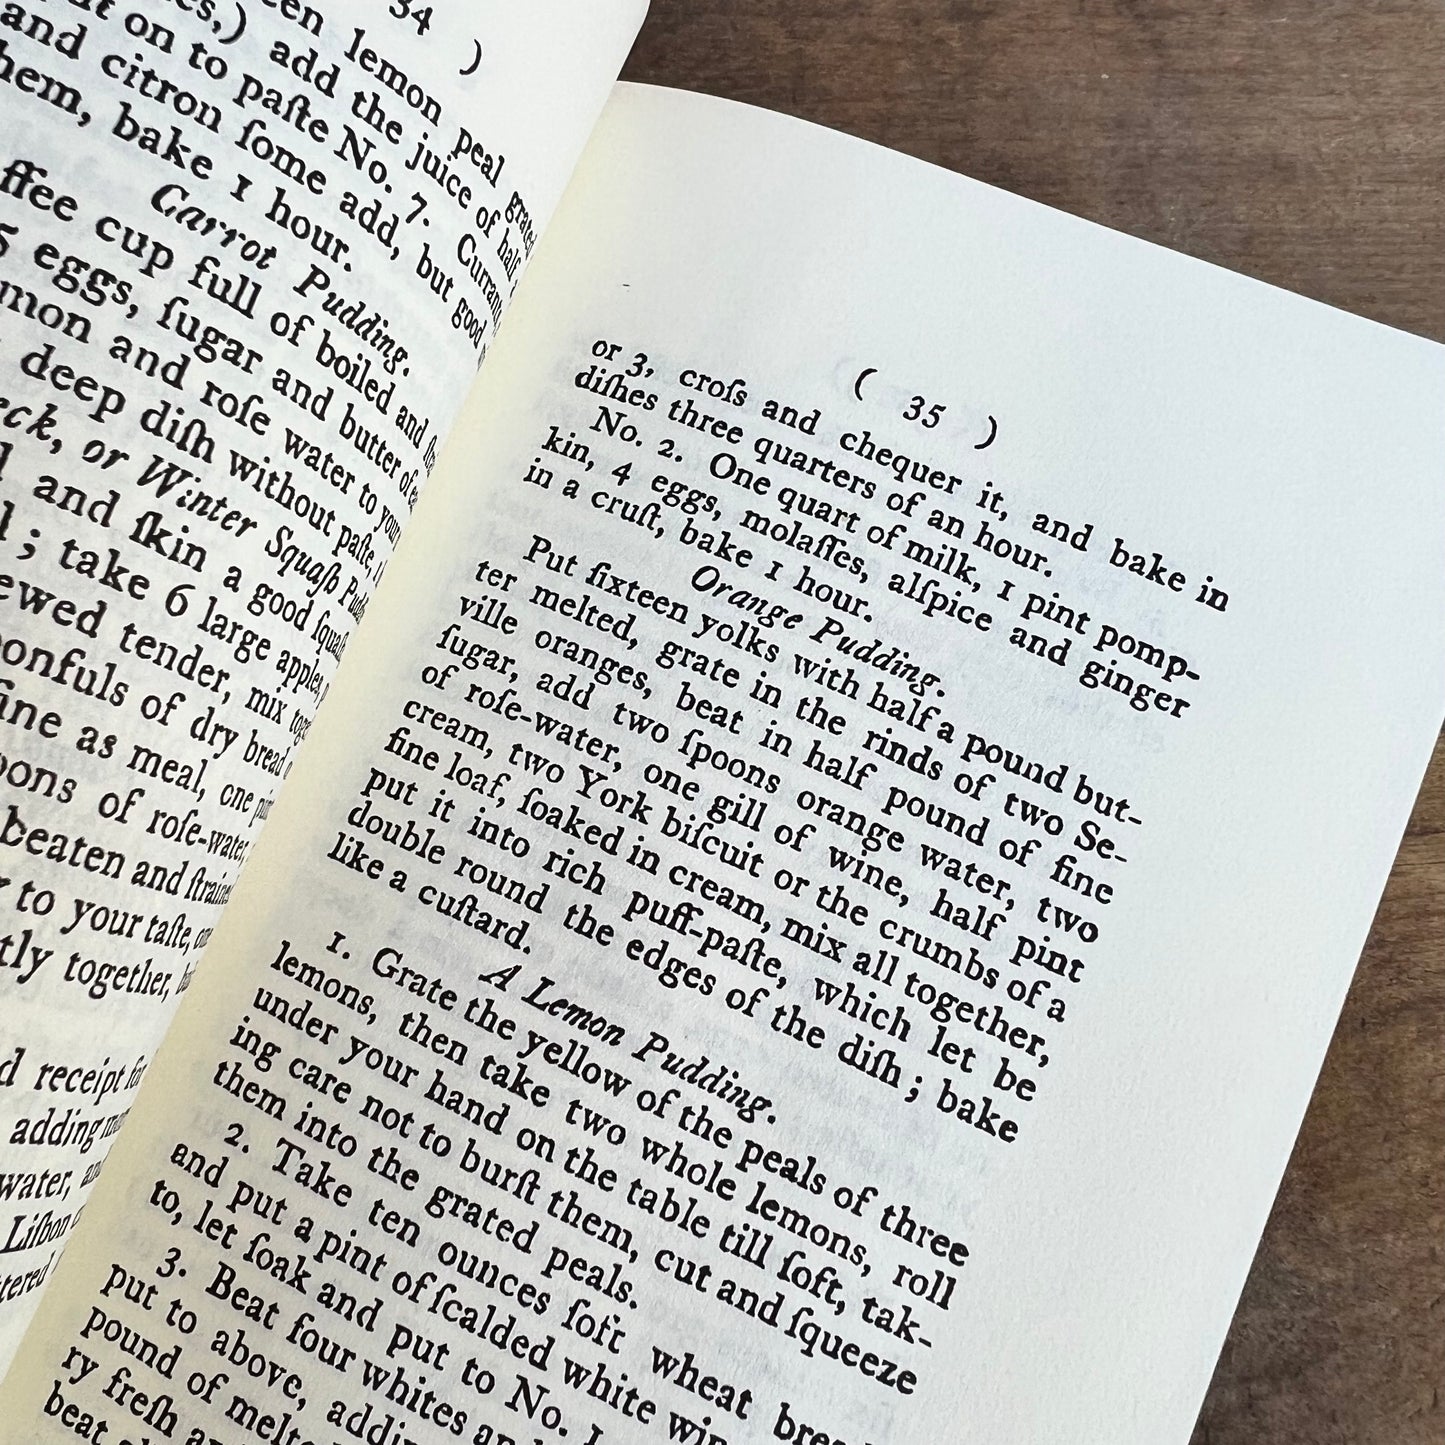 34 )
een lemon peal grated
es,) add the juice of half
on to paſte No. 7. Currants
and citron ſome add, but good
hem, bake 1 hour.
Carrot Pudding.
ffee cup full of boiled and
5 eggs, ſugar and butter of
mon and roſe water to your
deep diſh without paſte, 1
eck, or Winter Squaſh
and ſkin a good
; take 6 large apples,
ewed tender, mix
oonfuls of dry bread
fine as meal, one
oons of roſe-water,
beaten and
to your taſte,
tly together,
receipt for
adding
water,
Liſbon
( 35 )
or 3, croſs and chequer it, and bake in
diſhes three quarters of an hour.
No. 2. One quart of milk, 1 pint pomp-
kin, 4 eggs, molaſſes, alſpice and ginger
in a cruſt, bake 1 hour.
Orange Pudding.
Put ſixteen yolks with half a pound but-
ter melted, grate in the rinds of two Se-
ville oranges, beat in half pound of fine
ſugar, add two ſpoons orange water, two
of roſe-water, one gill of wine, half pint
cream, two York biſcuit or the crumbs of a
fine loaf, ſoaked in cream, mix all together,
put it into rich puff-paſte, which let be
double round the edges of the diſh; bake
like a cuſtard.
A Lemon Pudding.
1. Grate the yellow of the peals of three
lemons, then take two whole lemons, roll
under your hand on the table till ſoft, tak-
ing care not to burſt them, cut and ſqueeze
them into the grated peals.
2. Take ten ounces ſoft wheat
and put a pint of ſcalded white
to, let ſoak and put to No. 1.
3. Beat four whites
put to above, adding
pound of
ry freſh
beat